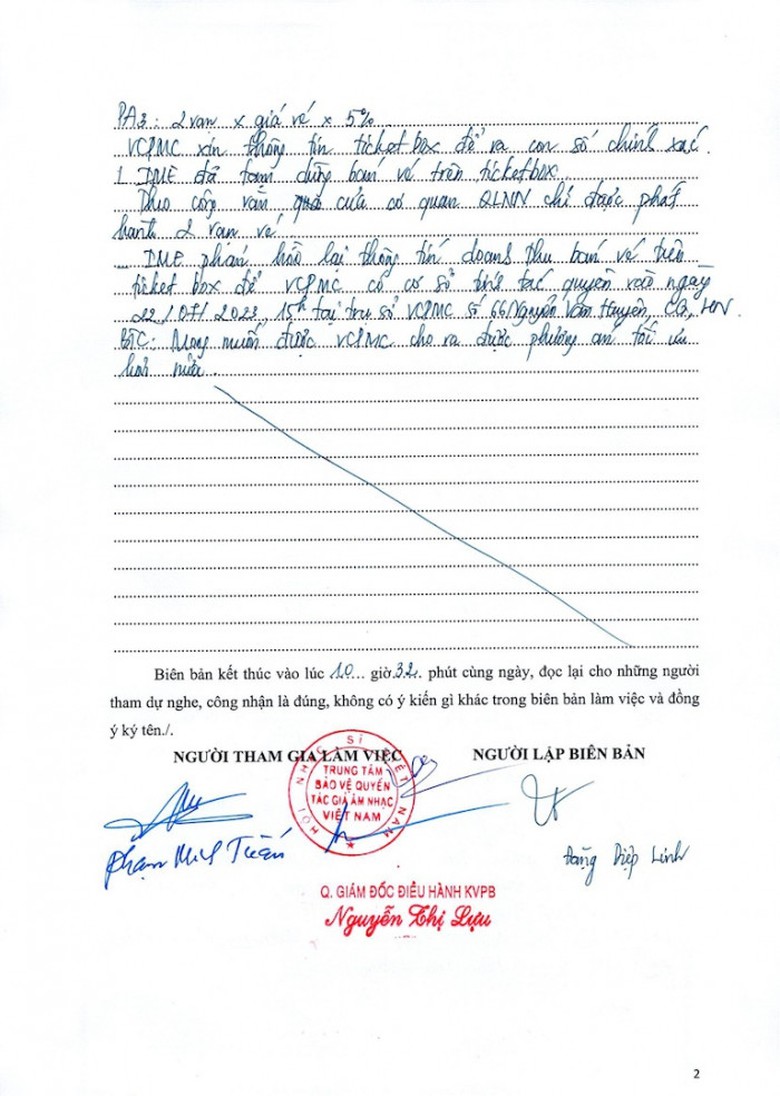 PA3: 2 vạn x giá vé x 5%
VCPMC xin thông tin ticket box để ra con số chính xác.
1 IME đã tạm dừng bán vé trên ticketbox
Theo công văn của cơ quan QLNN chỉ được phát
hành 2 vạn vé
IME phản hồi lại thông tin doanh thu bán vé trên
ticket box để VCPMC có cơ sở tính tác quyền vào ngày
22/07/2023, 15h tại trụ sở VCPMC số 66 Nguyễn Văn Huyên, CG, HN.
BTC: Mong muốn được VCPMC cho ra được phương án tối ưu
hơn nữa.
Biên bản kết thúc vào lúc 10 giờ 32 phút cùng ngày, đọc lại cho những người
tham dự nghe, công nhận là đúng, không có ý kiến gì khác trong biên bản làm việc và đồng
ý ký tên./.
NGƯỜI THAM GIA LÀM VIỆC NGƯỜI LẬP BIÊN BẢN
HỘI NHẠC SĨ VIỆT NAM
TRUNG TÂM
BẢO VỆ QUYỀN
TÁC GIẢ ÂM NHẠC
VIỆT NAM
Phạm Minh Tuấn
Đặng Diệp Linh
Q. GIÁM ĐỐC ĐIỀU HÀNH KVPB
Nguyễn Thị Lựu
2